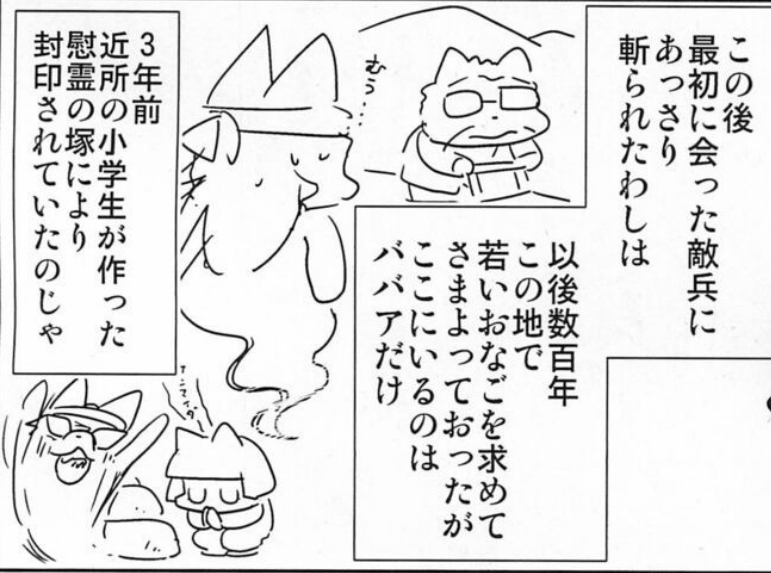 この後
最初に会った敵兵に
あっさり
斬られたわしは
以後数百年
この地で
若いおなごを求めて
さまよっておったが
ここにいるのは
ババアだけ
むぅ…
3年前
近所の小学生が作った
慰霊の塚により
封印されていたのじゃ